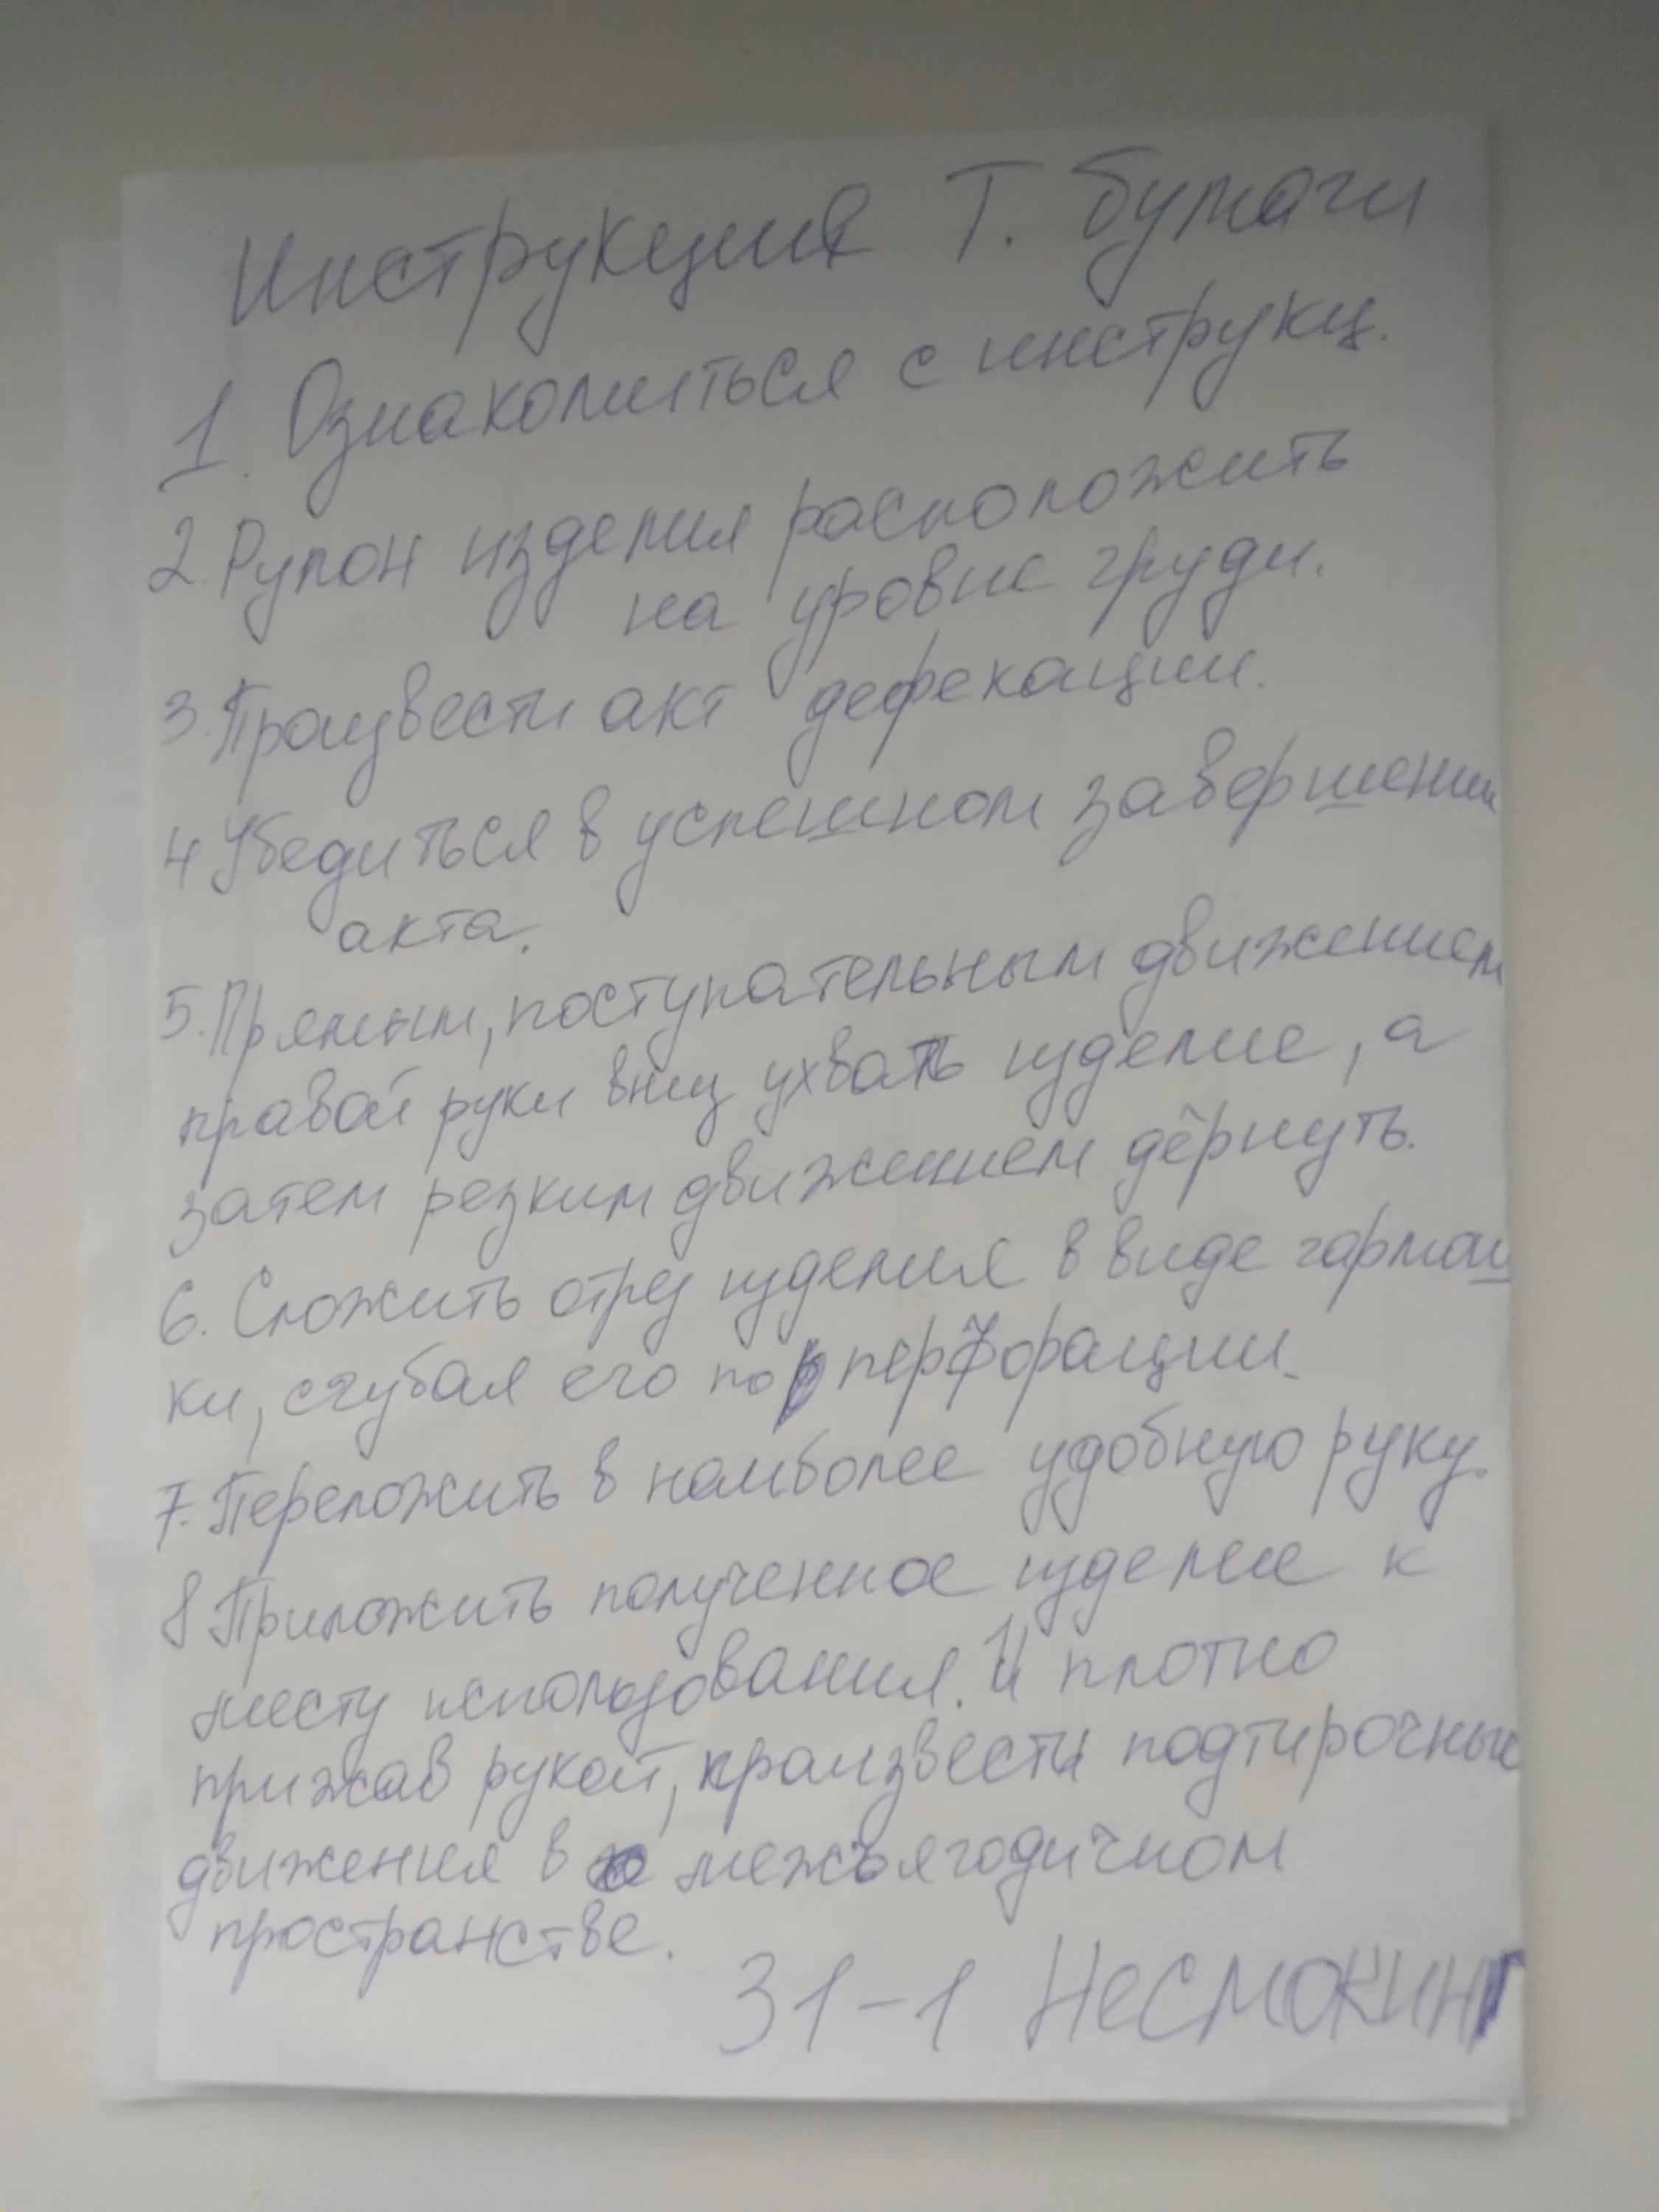 Инструкция Т. бумаги
1. Ознакомиться с инструкц.
2. Рулон изделия расположить
на уровне груди.
3. Произвести акт дефекации.
4 Убедиться в успешном завершении
акта.
5. Прямым, поступательным движением
правой руки вниз ухвать изделие, а
затем резким движением дёрнуть.
6. Сложить отрез изделия в виде гармош
ки, сгубая его по перфорации.
7. Переложить в наиболее удобную руку.
8 Приложить полученное изделие к
месту использования. И плотно
прижав рукой, произвести подтирочные
движения в межъягодичном
пространстве.
31-1 Несмокинг